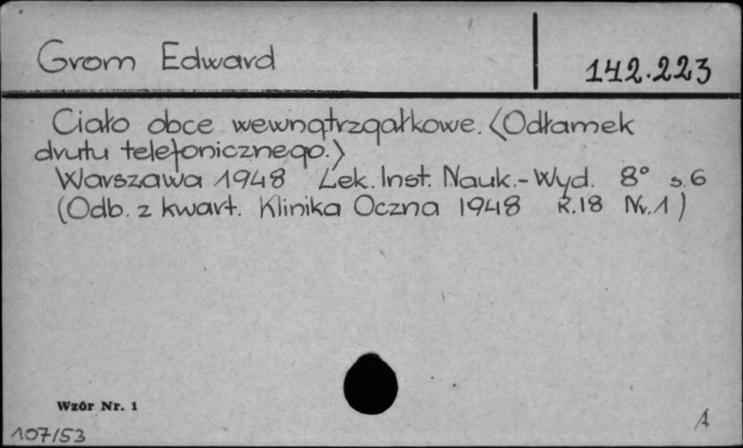 Grom Edward
142.223
Ciało obce wewnątrzgałkowe. <Odłamek
drutu telefonicznego.>
Warszawa 1948 Lek. Inst. Nauk.-Wyd. 8° s.6
(Odb. z kwart. Klinika Oczna 1948 R.18 Nr.1)
Wzór Nr. 1
A
107/53